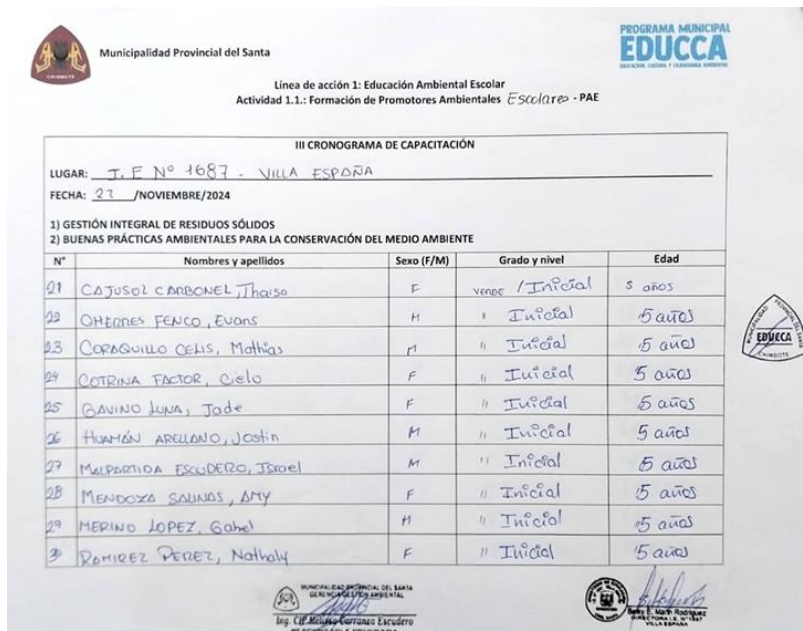 CHIMBOTE
Municipalidad Provincial del Santa
PROGRAMA MUNICIPAL
EDUCCA
EDUCACIÓN, CULTURA Y CIUDADANÍA AMBIENTAL
Línea de acción 1: Educación Ambiental Escolar
Actividad 1.1.: Formación de Promotores Ambientales Escolares - PAE
III CRONOGRAMA DE CAPACITACIÓN
LUGAR: I.E Nº 1687 - VILLA ESPAÑA
FECHA: 27 /NOVIEMBRE/2024
1) GESTIÓN INTEGRAL DE RESIDUOS SÓLIDOS
2) BUENAS PRÁCTICAS AMBIENTALES PARA LA CONSERVACIÓN DEL MEDIO AMBIENTE
N° Nombres y apellidos Sexo (F/M) Grado y nivel Edad
21 CAJUSOL CARBONEL, Thaisa F VERDE / Inicial 5 años
22 Evans M " Inicial 5 años
23 CORAQUILLO CELIS, Mathias M " Inicial 5 años
24 COTRINA FACTOR, Cielo F " Inicial 5 años
25 GAVINO LUNA, Jade F " Inicial 5 años
26 HUAMÁN ARELLANO, Jostin M " Inicial 5 años
27 MALPARTIDA ESCUDERO, Israel M " Inicial 5 años
28 MENDOZA SALINAS, AMY F " Inicial 5 años
29 MERINO LOPEZ, Gahel M " Inicial 5 años
30 RAMIREZ PEREZ, Nathaly F " Inicial 5 años
MUNICIPALIDAD PROVINCIAL DEL SANTA
EDUCCA
CHIMBOTE
MUNICIPALIDAD PROVINCIAL DEL SANTA
GERENCIA GESTIÓN AMBIENTAL
Ing. CIP Carranza Escudero
E. Marth Rodríguez
DIRECTORA I.E. N°1687
VILLA ESPAÑA